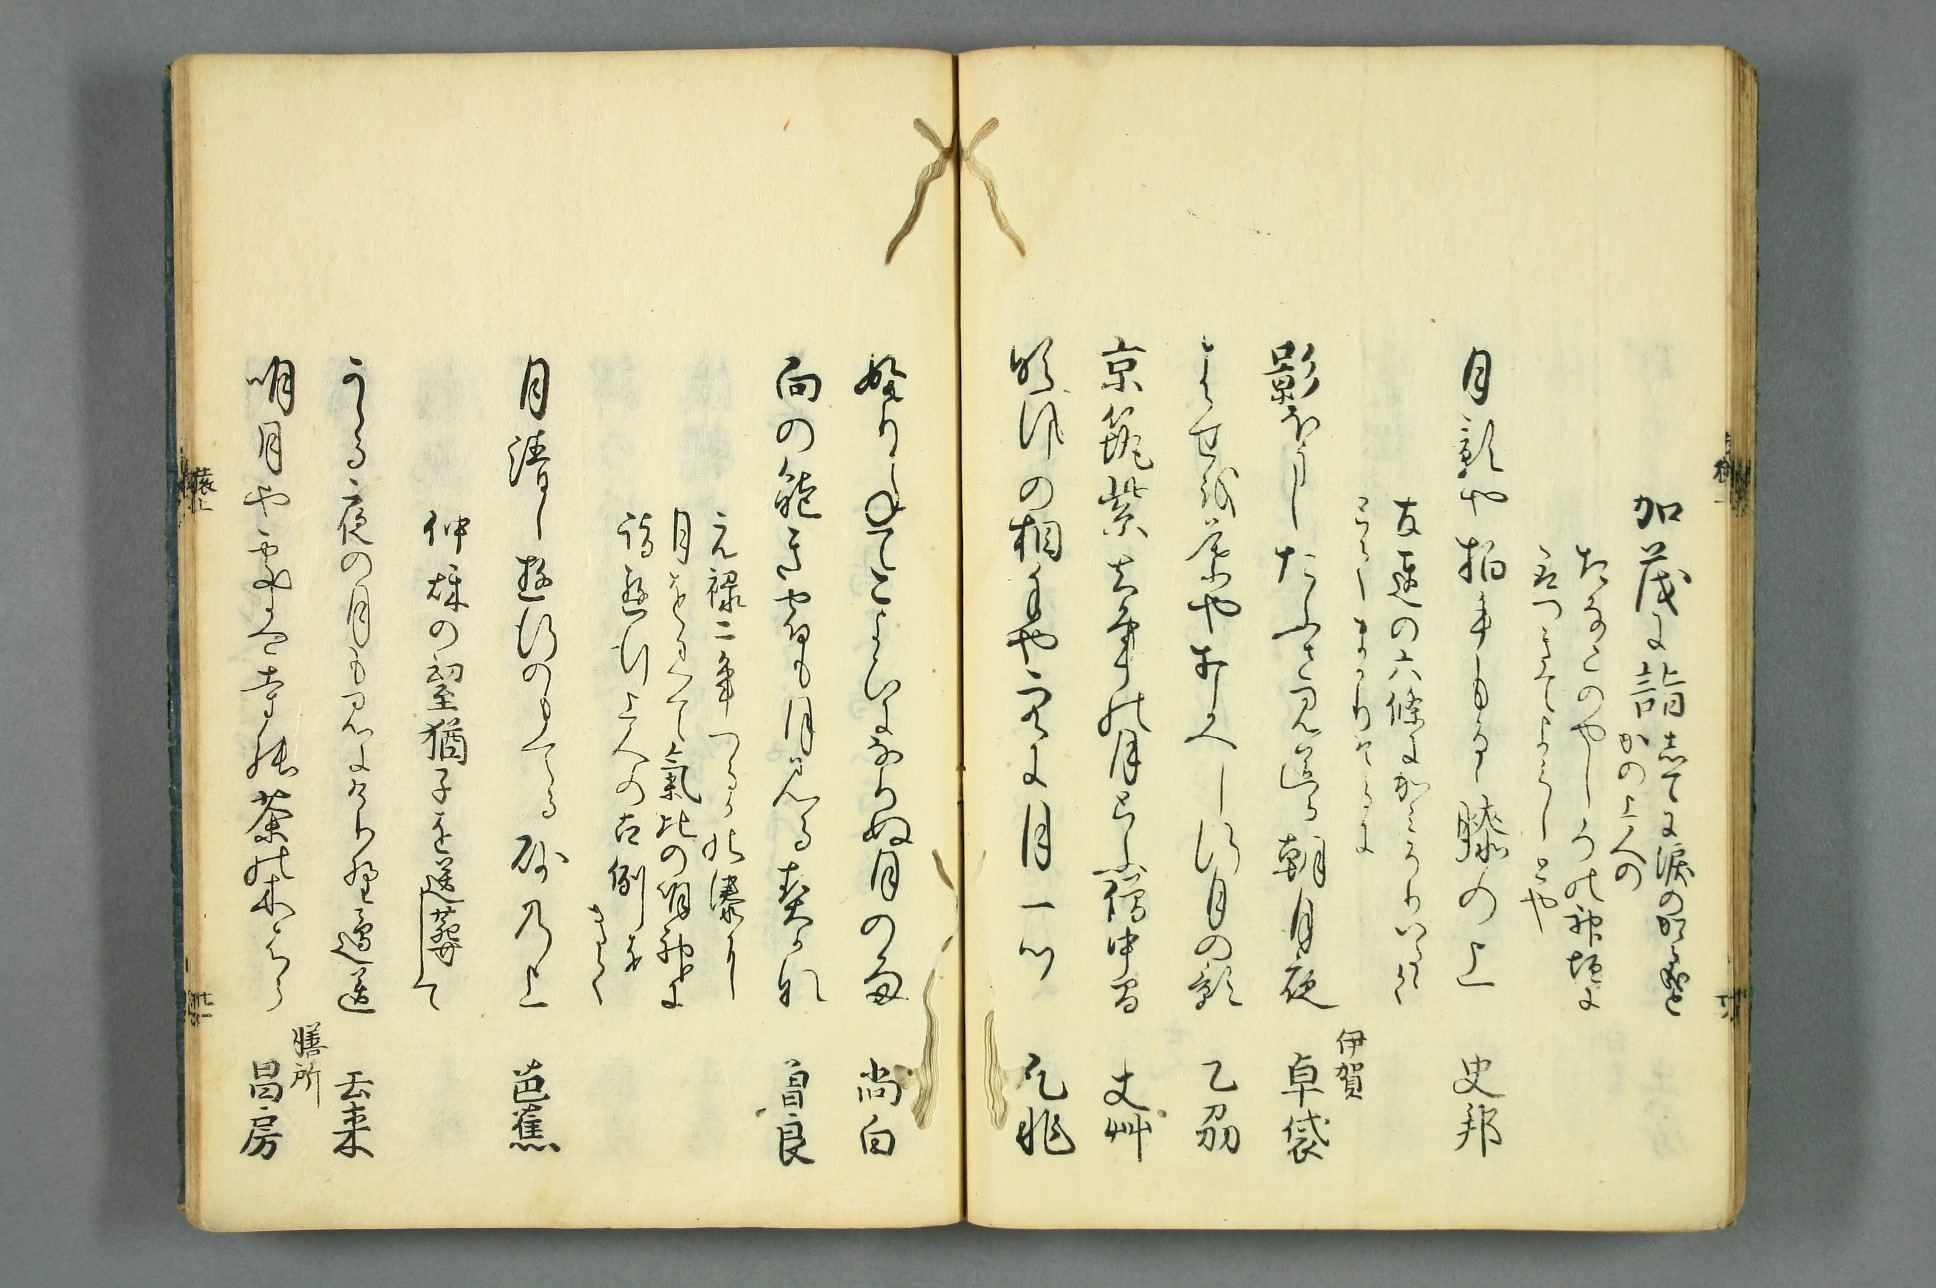 加茂に詣志てに涙のかゝる哉と
かの上人の
たなこのやしろの神垣に
取つきてよみしとや
月影や拍手もるゝ膝の上 史邦
友達の六條にかみそりいたゝく
とてまかりけるに
影ほうしたふさ見送る朝月夜 伊賀 卓袋
はせを葉や打かへし行月の影 乙刕
京筑紫去年の月とふ僧中間 丈艸
吹風の相手や空に月一つ 凡兆
ふりかねてこよひになりぬ月の雨 尚白
向の能き宅も月見る契かな 曽良
元禄二年つるかの湊に
月を見て氣比の明神に
詣遊行上人の古例を
きく
月清し遊行のもてる砂の上 芭蕉
仲秋の望猶子を送葬して
かゝる夜の月も見にけり野邊送 去来
明月や處は寺の茶の木はら 膳所 昌房